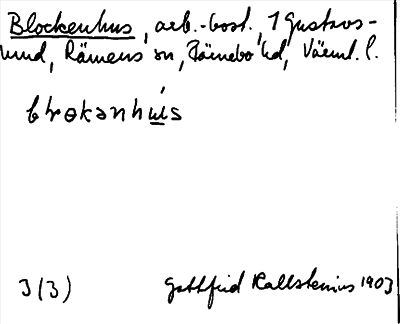 Blockenhus, arb.-bost., 1 Gustavs-
lund, Rämens sn, Färnebo hd, Värml. l.
blokanhus
3(3) Gottfrid Kallstenius 1903